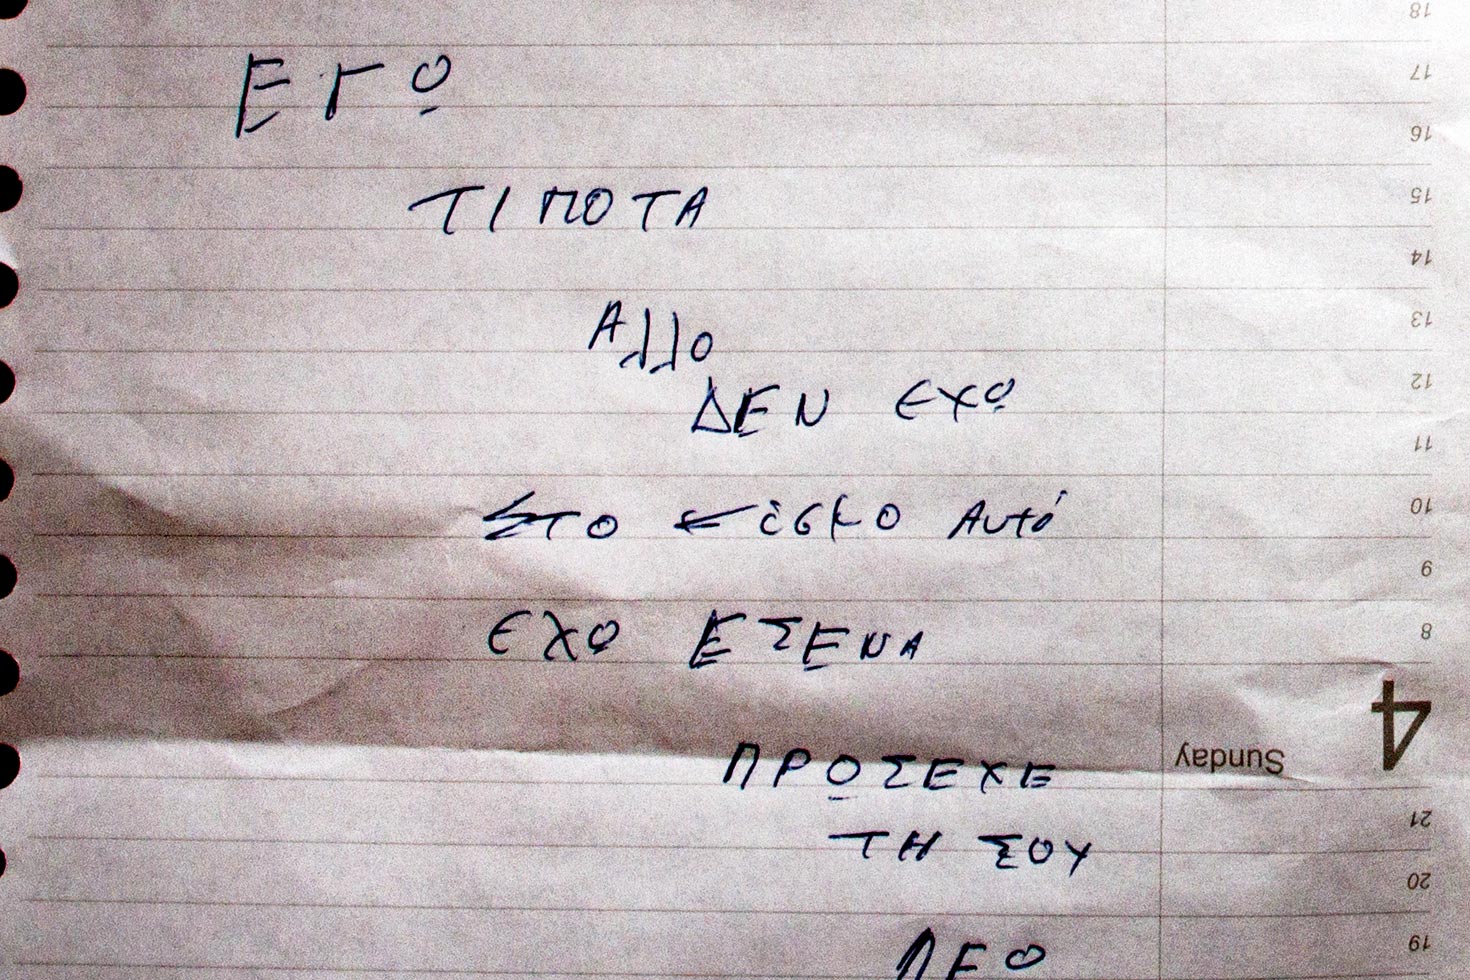 18
ΕΓΩ
17
16
ΤΙΠΟΤΑ
15
14
Αλλο
13
ΔΕΝ ΕΧΩ
12
11
ΣΤΟ Αυτό
10
9
ΕΧΩ ΕΣΕΝΑ
8
4
Sunday
ΠΡΟΣΕΧΕ
21
ΤΗ ΣΟΥ
20
ΛΕΩ
19